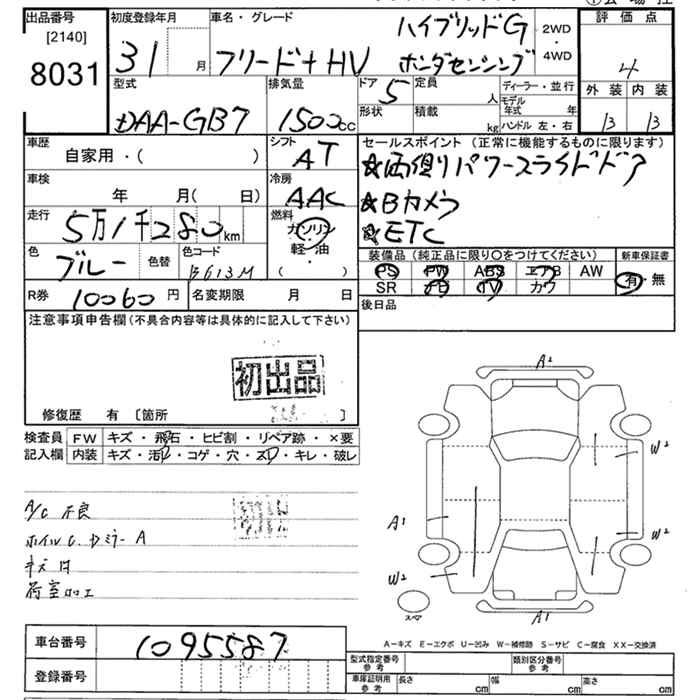 出品番号
[2140]
8031
初度登録年月
31 月
車名・グレード
フリード+HV ハイブリッドG
ホンダセンシング
2WD
4WD
評価点
4
外装 内装
B B
型式
DAA-GB7
排気量
1500cc
ドア 5
定員 人
形状
積載 kg
ディーラー・並行
モデル年式 年
ハンドル 左・右
車歴
自家用・( )
シフト
AT
セールスポイント (正常に機能するものに限ります)
☆両側パワースライドドア
☆Bカメラ
☆ETC
車検
年 月( 日)
冷房
AAC
走行
5万1千280km
燃料
ガソリン
軽・油
( ・ )
色
ブルー
色替
色コード
B613M
装備品 (純正品に限り○をつけてください)
PS PW ABS エアB AW
SR ナビ TV カワ
新車保証書
有・無
R券 10060円
名変期限 月 日
後日品
注意事項申告欄(不具合内容等は具体的に記入して下さい)
初出品
修復歴 有 〔箇所 〕
検査員
記入欄
FW キズ・飛石・ヒビ割・リペア跡・×要
内装 キズ・汚れ・コゲ・穴・スレ・キレ・破レ
A/C 不良
ホイルC、ドミラーA
荷室加工
A2
W2
A1
W2
W2
A1
A-キズ E-エクボ U-凹み W-補修跡 S-サビ C-腐食 XX-交換済
車台番号 1095587
登録番号
型式指定番号 参考
類別区分番号 参考
車庫証明用 参考
長さ cm
幅 cm
高さ cm